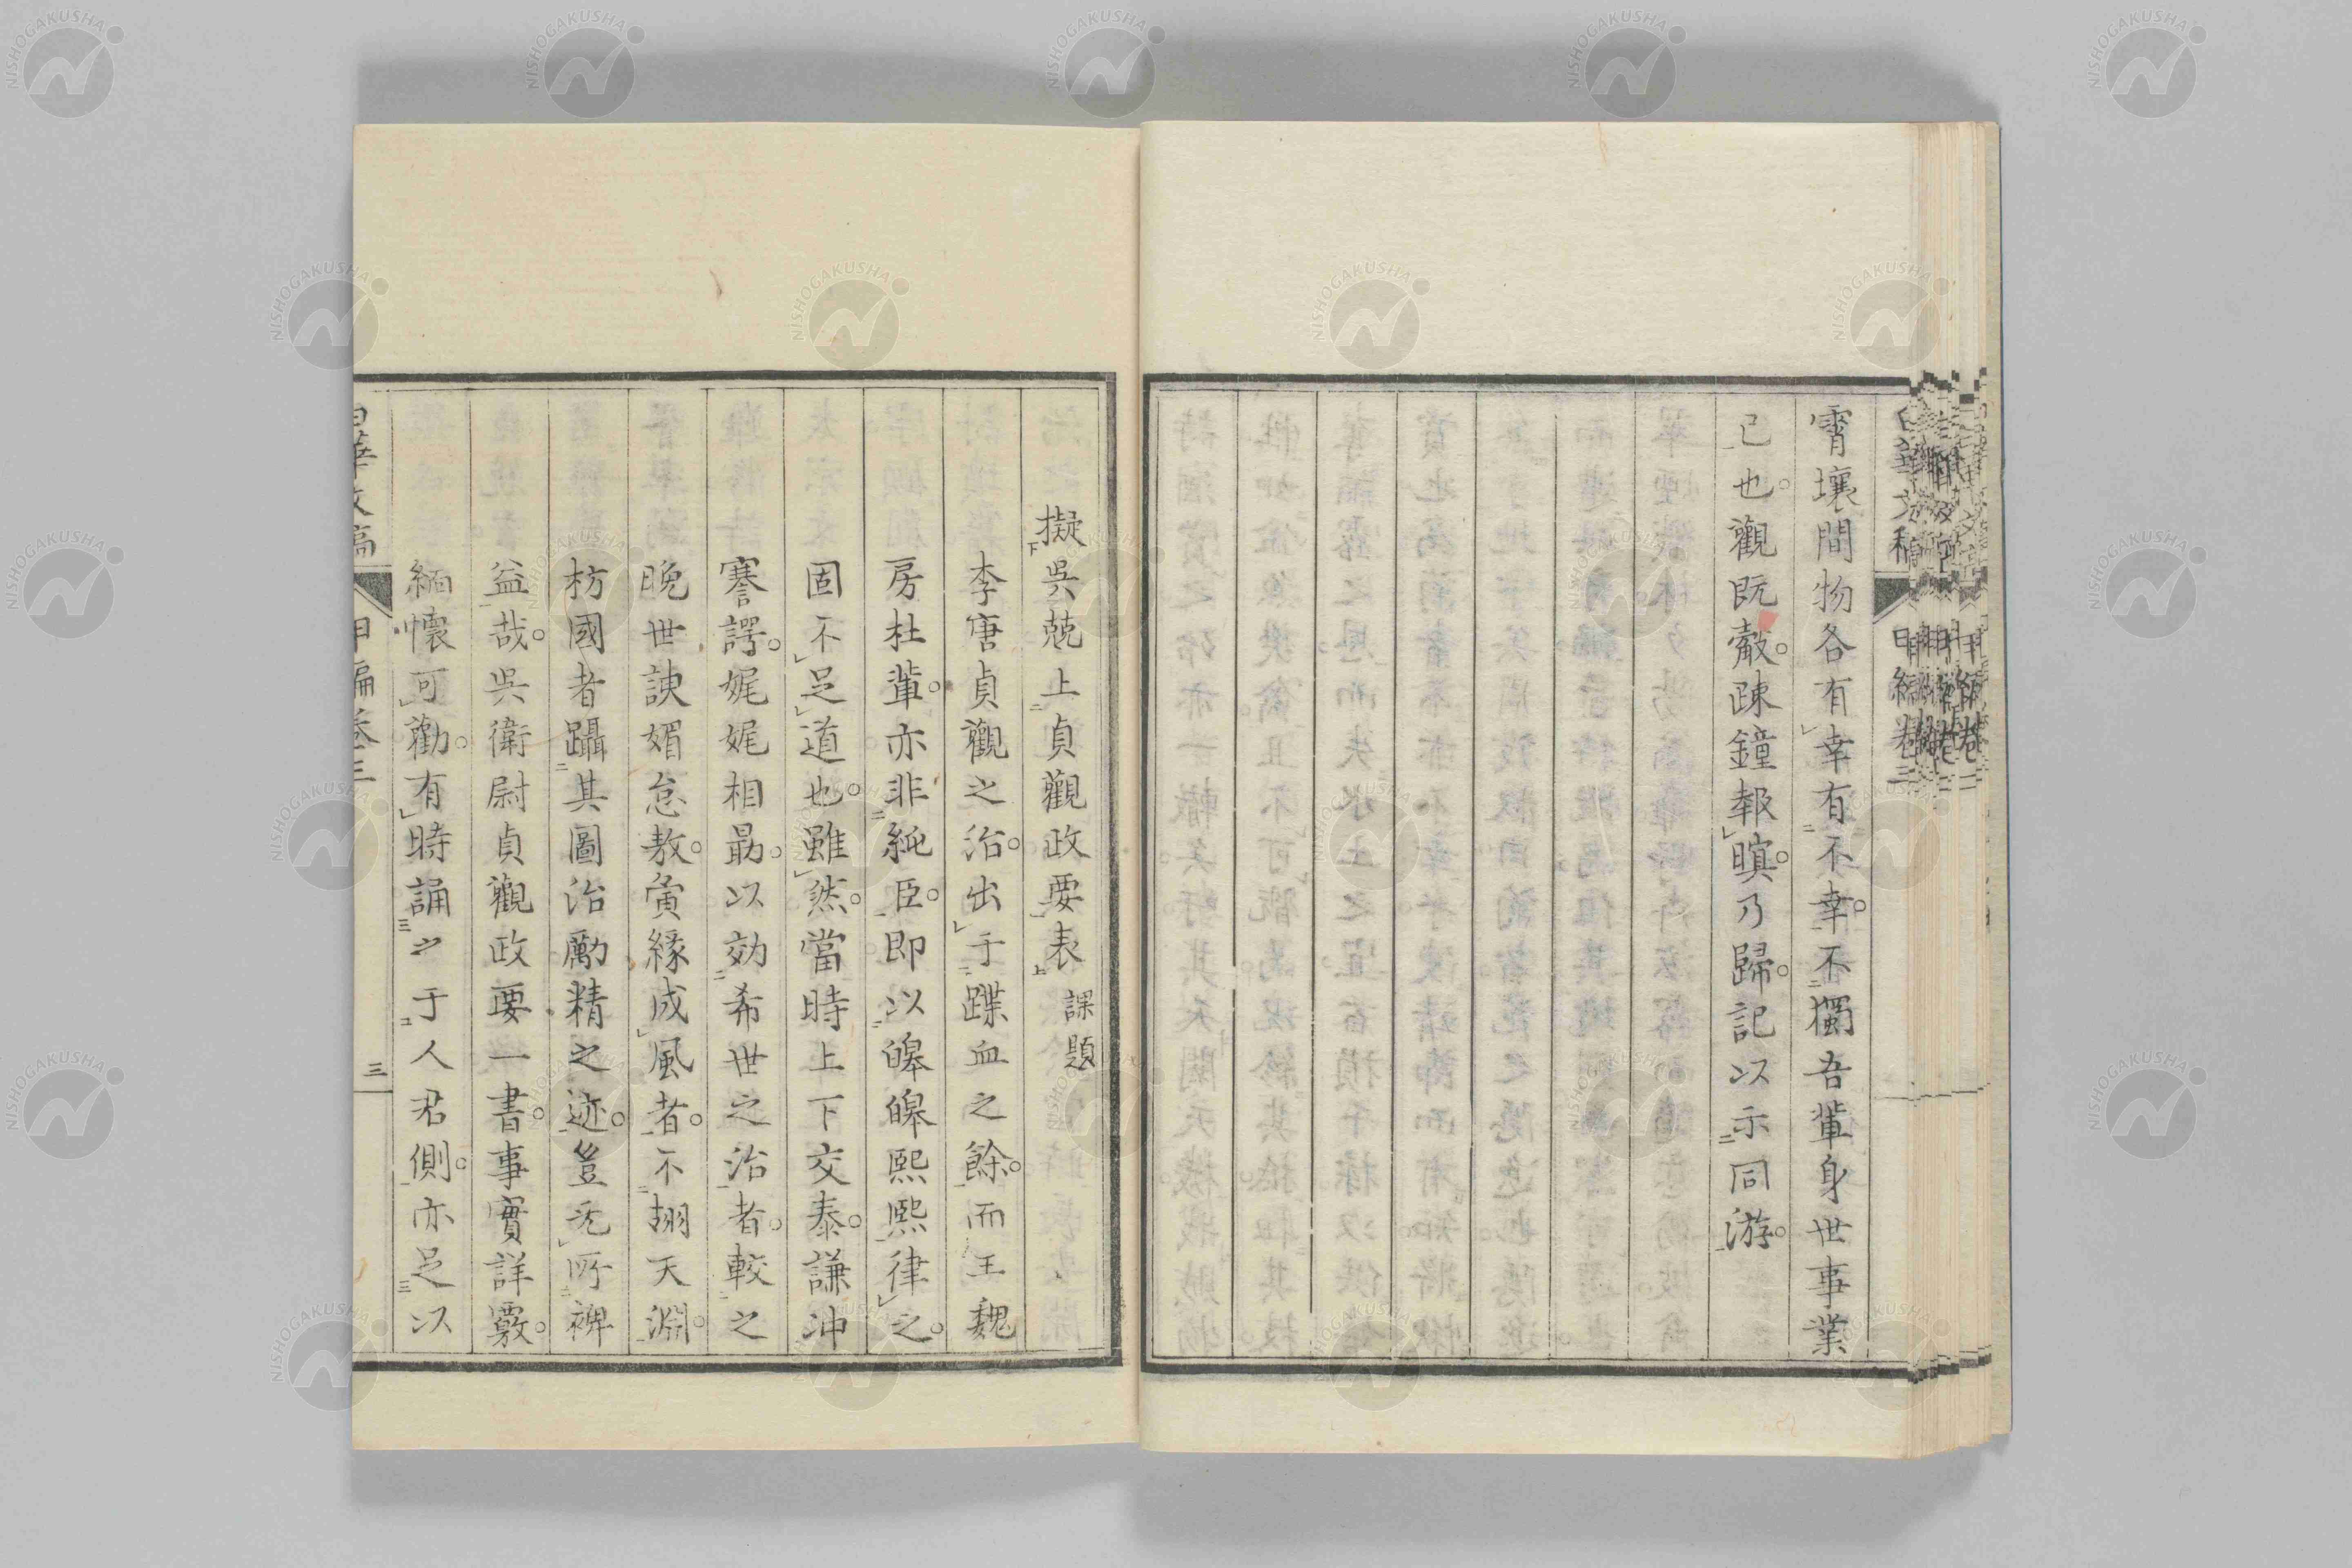 霄壤間物各有幸有不幸。不獨吾輩身世事業
已也。觀既。疎鐘報暝。乃歸。記以示同游。
擬吳兢上貞觀政要表 課題
李唐貞觀之治。出于蹀血之餘。而王魏
房杜輩。亦非純臣。即以皞皞熙熙律之。
固不足道也。雖然。當時上下交泰。謙冲
謇諤。娓娓相勗。以効希世之治者。較之
晚世諛媚怠敖。夤緣成風者。不翅天淵。
枋國者躡其圖治勵精之迹。豈无所裨
益哉。吳衛尉貞觀政要一書。事實詳覈。
緬懷可勸。有時誦之于人君側。亦足以
甲編卷三
三
NISHOGAKUSHA